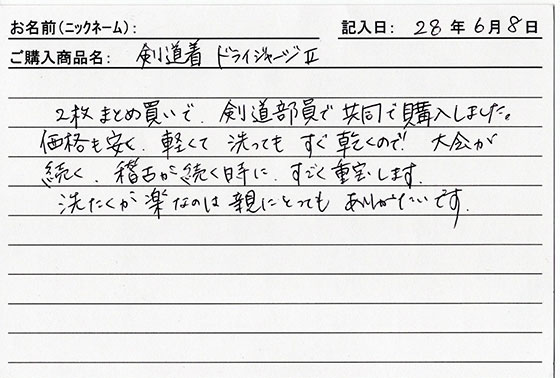 お名前(ニックネーム): 記入日: 28年6月8日
ご購入商品名: 剣道着 ドライジャージⅡ
2枚まとめ買いで、剣道部員で共同で購入しました。
価格も安く、軽くて洗ってもすぐ乾くので! 大会が
続く、稽古が続く時に、すごく重宝します。
洗たくが楽なのは親にとってもありがたいです。